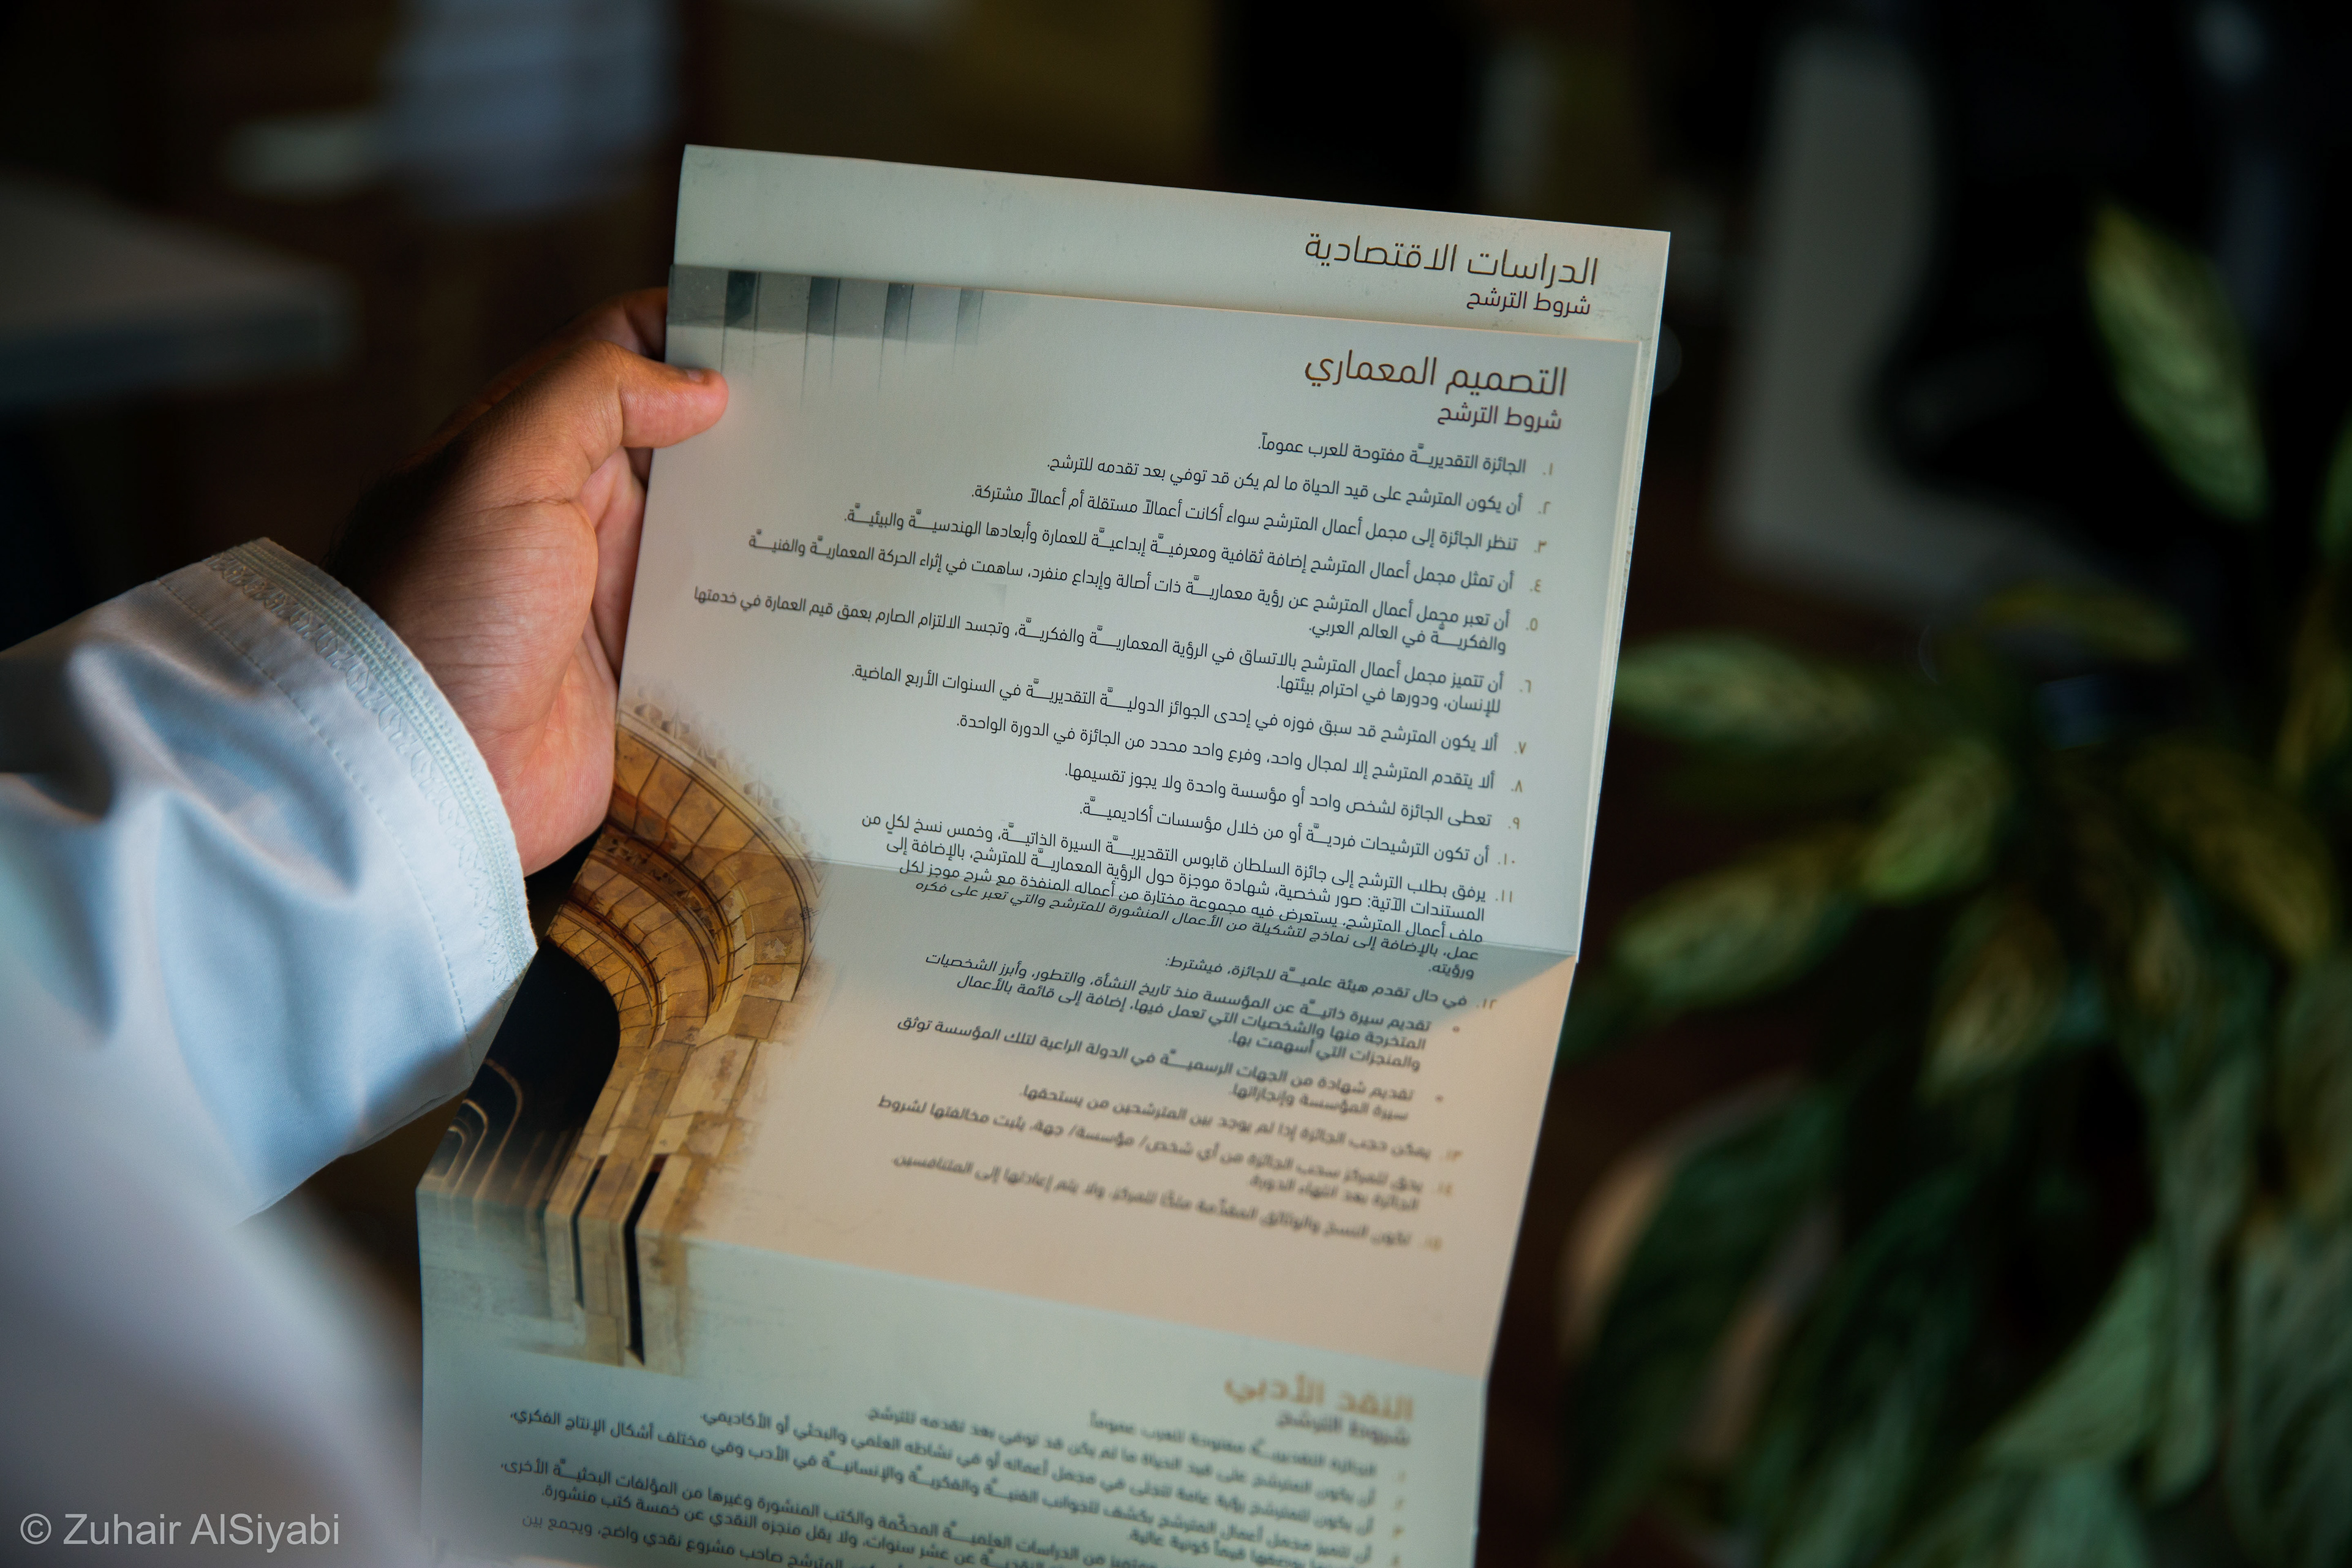 الدراسات الاقتصادية
شروط الترشح
التصميم المعماري
شروط الترشح
١. الجائزة التقديريـــة مفتوحة للعرب عموماً.
٢. أن يكون المترشح على قيد الحياة ما لم يكن قد توفي بعد تقدمه للترشح.
٣. تنظر الجائزة إلى مجمل أعمال المترشح سواء أكانت أعمالاً مستقلة أم أعمالاً مشتركة.
٤. أن تمثل مجمل أعمال المترشح إضافة ثقافية ومعرفيـــة إبداعيـــة للعمارة وأبعادها الهندسيـــة والبيئيـــة.
٥. أن تعبر مجمل أعمال المترشح عن رؤية معماريـــة ذات أصالة وإبداع منفرد، ساهمت في إثراء الحركة المعماريـــة والفنيـــة
والفكريـــة في العالم العربي.
٦. أن تتميز مجمل أعمال المترشح بالاتساق في الرؤية المعماريـــة والفكريـــة، وتجسد الالتزام الصارم بعمق قيم العمارة في خدمتها
للإنسان، ودورها في احترام بيئتها.
٧. ألا يكون المترشح قد سبق فوزه في إحدى الجوائز الدوليـــة التقديريـــة في السنوات الأربع الماضية.
٨. ألا يتقدم المترشح إلا لمجال واحد، وفرع واحد محدد من الجائزة في الدورة الواحدة.
٩. تعطى الجائزة لشخص واحد أو مؤسسة واحدة ولا يجوز تقسيمها.
١٠. أن تكون الترشيحات فرديـــة أو من خلال مؤسسات أكاديميـــة.
١١. يرفق بطلب الترشح إلى جائزة السلطان قابوس التقديريـــة السيرة الذاتيـــة، وخمس نسخ لكل من
المستندات الآتية: صور شخصية، شهادة موجزة حول الرؤية المعماريـــة للمترشح، بالإضافة إلى
ملف أعمال المترشح، يستعرض فيه مجموعة مختارة من أعماله المنفذة مع شرح موجز لكل
عمل، بالإضافة إلى نماذج لتشكيلة من الأعمال المنشورة للمترشح والتي تعبر على فكره
ورؤيته.
١٢. في حال تقدم هيئة علميـــة للجائزة، فيشترط:
• تقديم سيرة ذاتيـــة عن المؤسسة منذ تاريخ النشأة، والتطور، وأبرز الشخصيات
المتخرجة منها والشخصيات التي تعمل فيها، إضافة إلى قائمة بالأعمال
والمنجزات التي أسهمت بها.
• تقديم شهادة من الجهات الرسميـــة في الدولة الراعية لتلك المؤسسة توثق
سيرة المؤسسة وإنجازاتها.
١٣. يمكن حجب الجائزة إذا لم يوجد بين المترشحين من يستحقها.
١٤. يحق للمركز سحب الجائزة من أي شخص/ مؤسسة/ جهة، يثبت مخالفتها لشروط
الجائزة بعد انتهاء الدورة.
١٥. تكون النسخ والوثائق المقدّمة ملكًا للمركز، ولا يتم إعادتها إلى المتنافسين.
النقد الأدبي
شروط الترشح
الجائزة التقديريـــة مفتوحة للعرب عموماً.
أن يكون المترشح على قيد الحياة ما لم يكن قد توفي بعد تقدمه للترشح.
أن يكون للمترشح رؤية عامة تتجلى في مجمل أعماله أو في نشاطه العلمي والبحثي أو الأكاديمي.
أعمال المترشح بكشف للجوانب الفنيـــة والفكريـــة والإنسانيـــة في الأدب وفي مختلف أشكال الإنتاج الفكري،
قيماً كونية عالية.
من الدراسات العلميـــة المحكّمة والكتب المنشورة وغيرها من المؤلفات البحثيـــة الأخرى،
عن عشر سنوات، ولا يقل منجزه النقدي عن خمسة كتب منشورة.
المترشح صاحب مشروع نقدي واضح، ويجمع بين
© Zuhair AlSiyabi